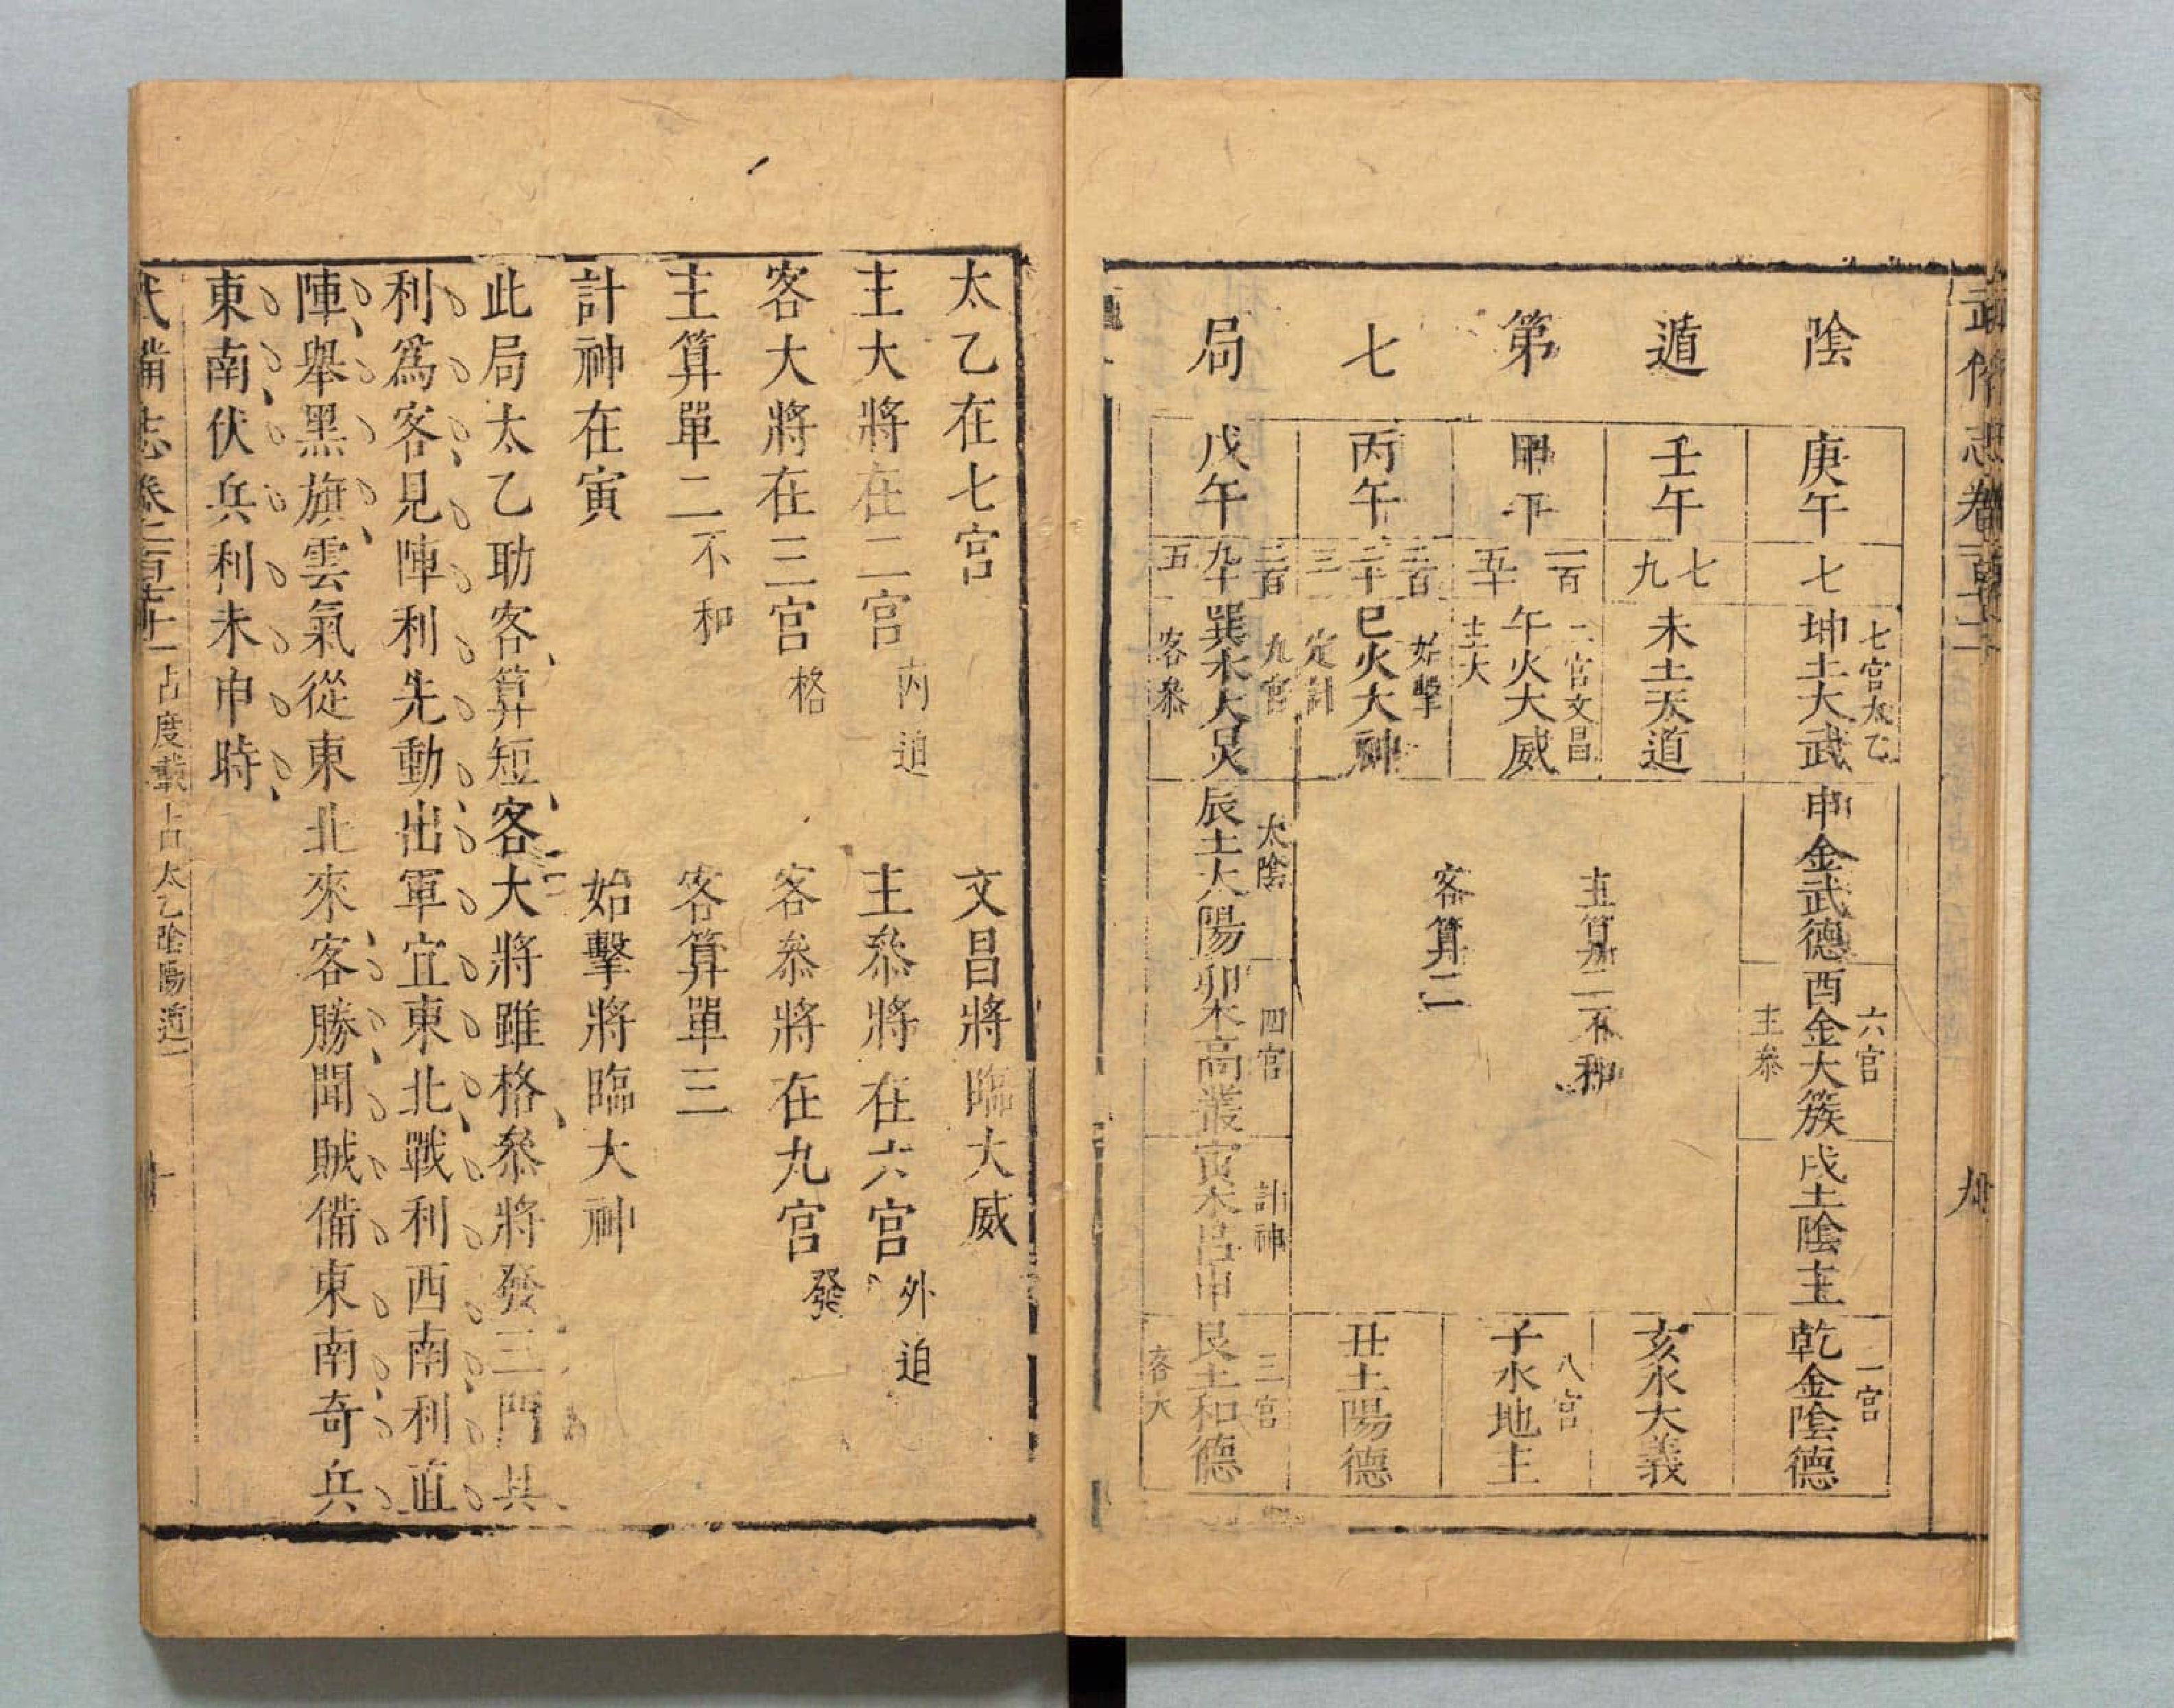 陰遁第七局
庚午
壬午
甲午
丙午
戊午
七
七
九
一百
五十
二百
二十
三
二百
九十
五
七宮太乙
坤土大武
未土天道
二宮文昌
午火大威
主大
始擊
巳火大神
定計
九宮
巽木大炅
客叅
申金武德
主算二不和
客算三
太陰
辰土太陽
六宮
酉金大簇
主叅
四宮
卯木高叢
戌土陰主
計神
寅木呂申
一宮
乾金陰德
亥水大義
八宮
子水地主
丑土陽德
三宮
艮土和德
客大
太乙在七宮 文昌將臨大威
主大將在二宮內迫 主叅將在六宮外迫
客大將在三宮格 客叅將在九宮發
主算單二不和 客算單三
計神在寅 始擊將臨大神
此局太乙助客算短客大將雖格叅將發三門具
利爲客見陣利先動出軍宜東北戰利西南利直
陣舉黑旗雲氣從東北來客勝聞賊備東南奇兵
東南伏兵利未申時
占度載 占 太乙陰陽遁一